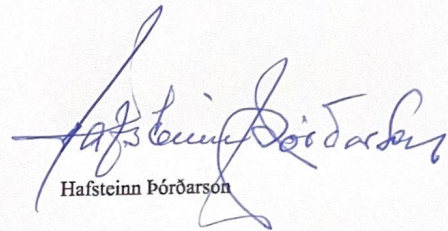 Hafsteinn Þórðarson
Hafsteinn Þórðarson